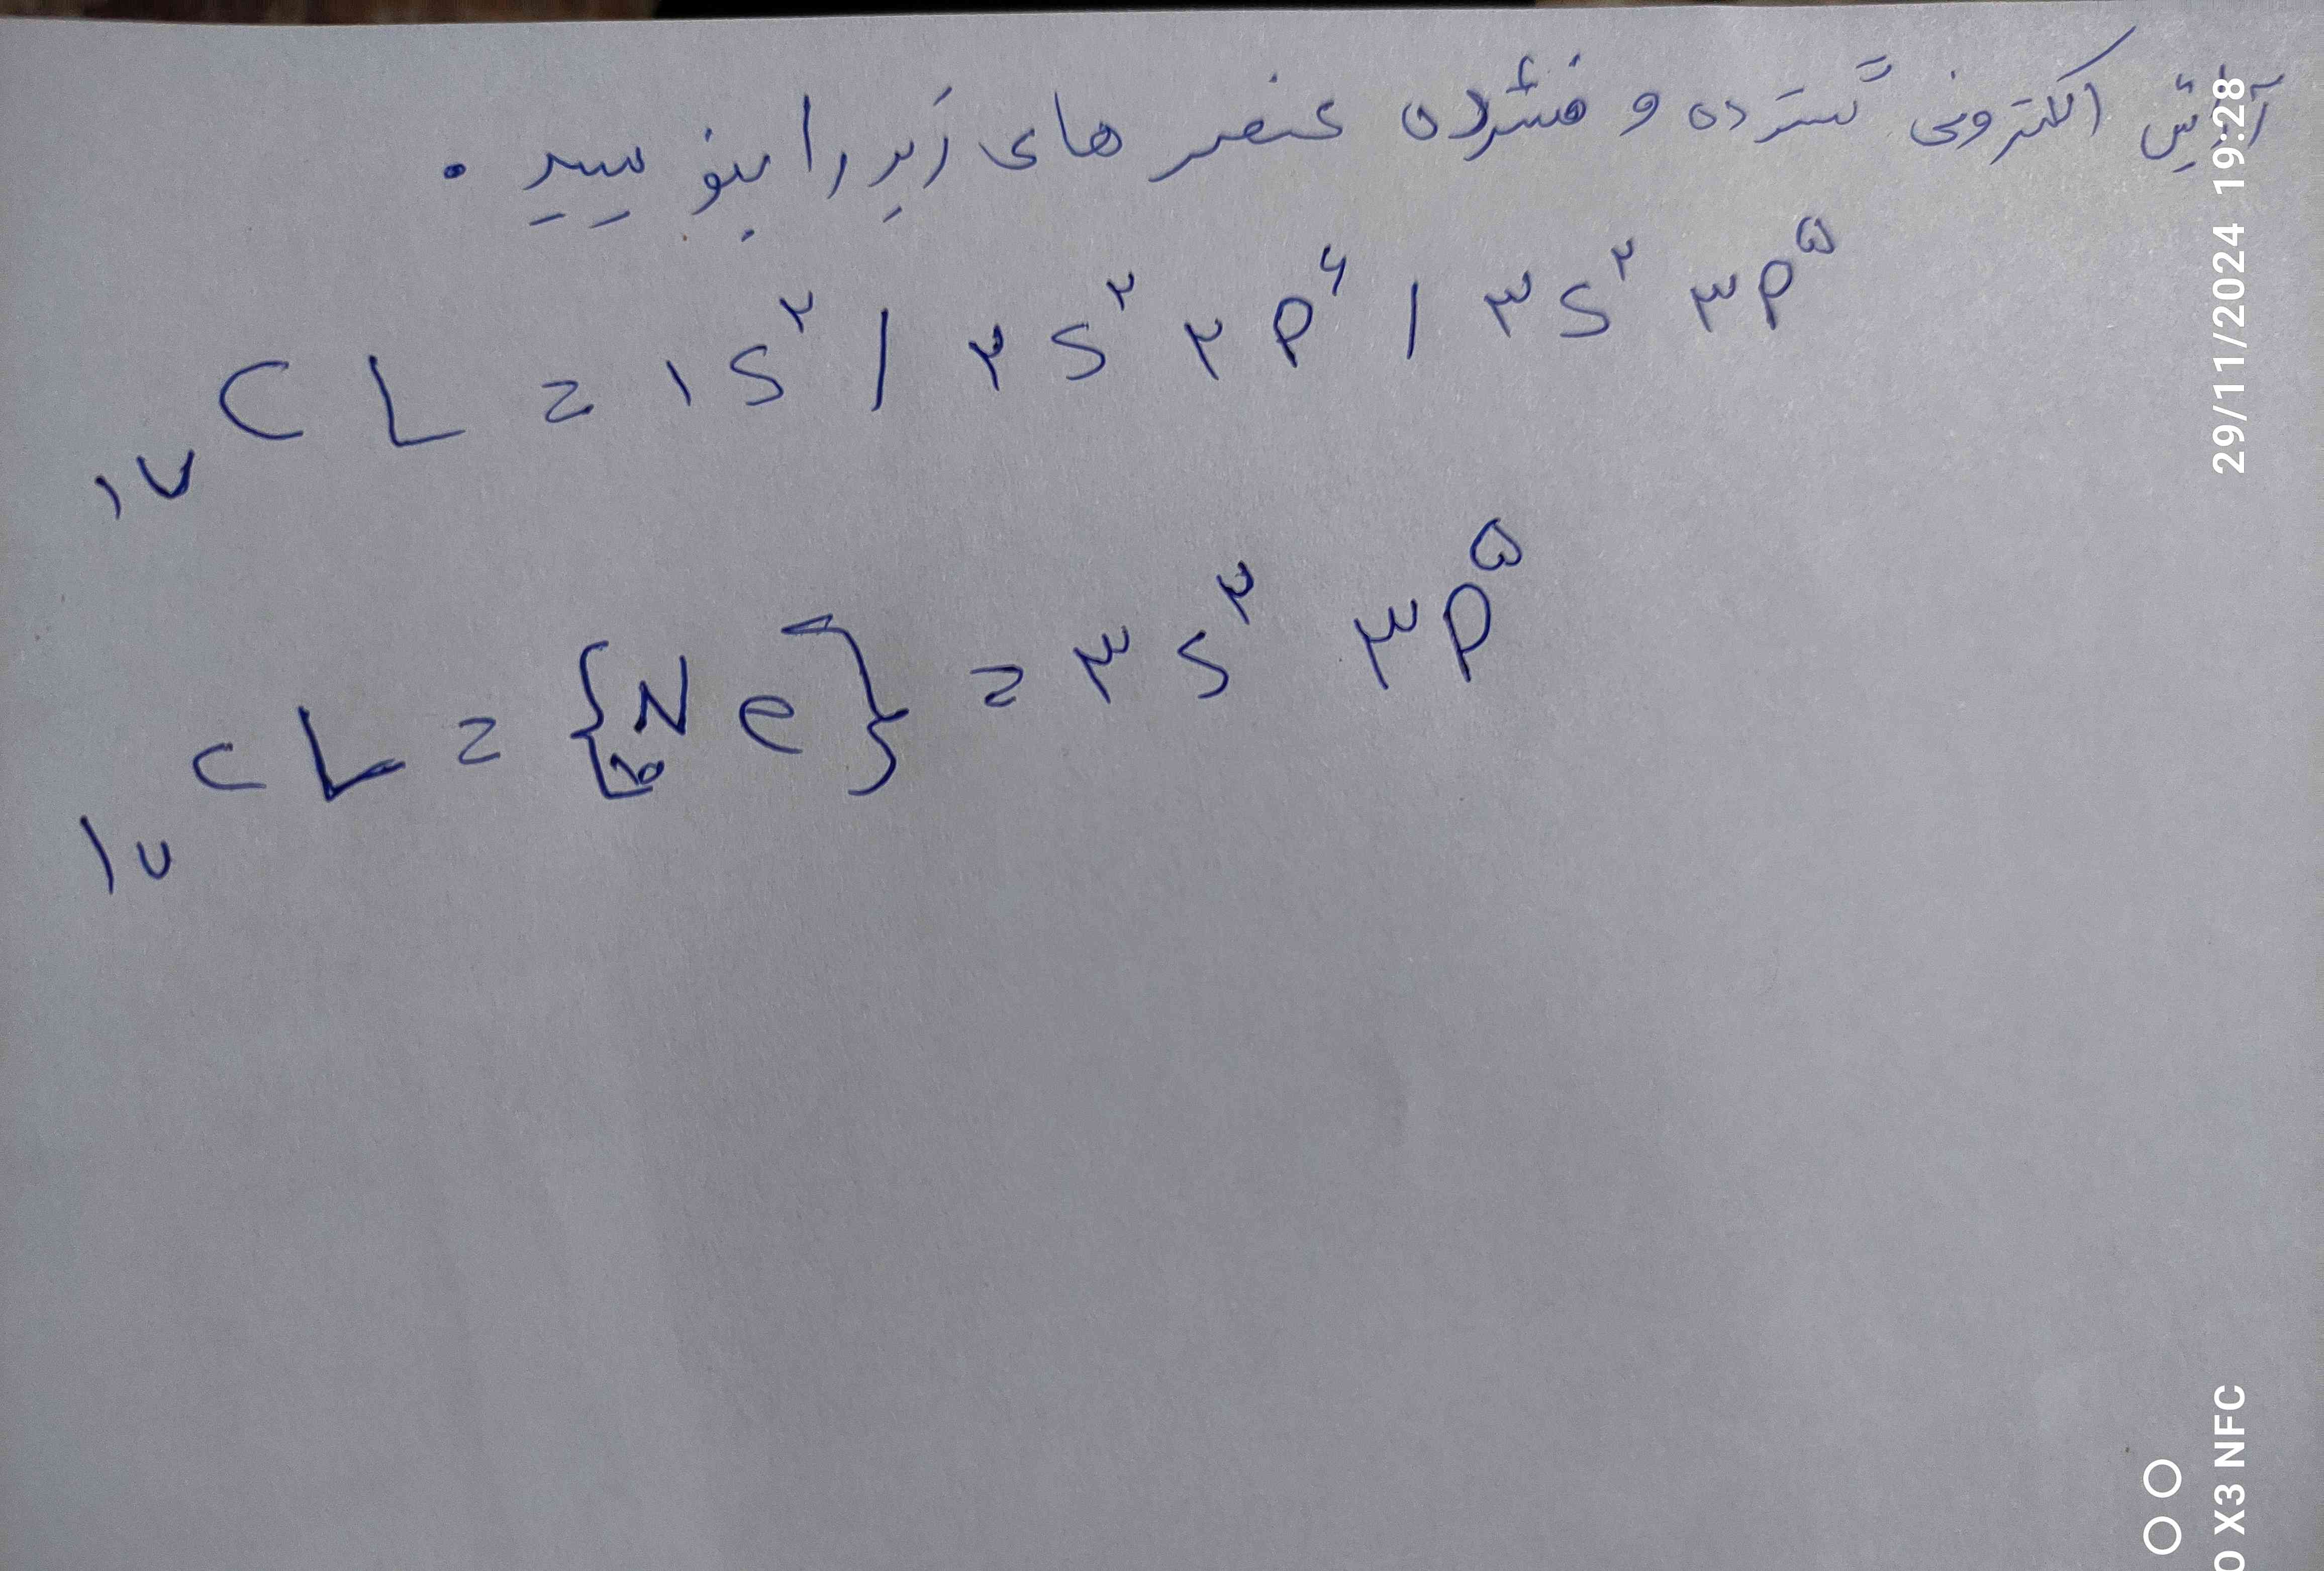 آرایش الکترونی گسترده و فشرده عنصر های زیر را بنویسید .
۱۷ CL = ۱S۲ / ۲S۲ ۲P۶ / ۳S۲ ۳P۵
۱۷ CL = {۱۰Ne} = ۳S۲ ۳P۵
29/11/2024 19:28
0 X3 NFC